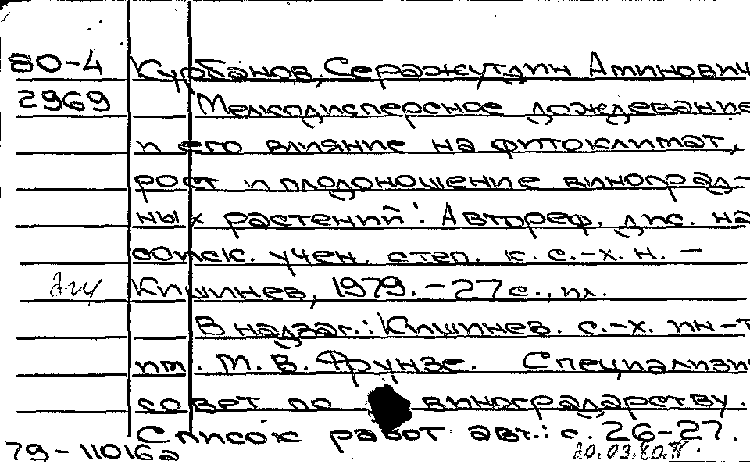 80-4 Курбанов, Серажутдин Аминович
2969 Мелкодисперсное дождевание
и его влияние на фитоклимат,
рост и плодоношение виноград-
ных растений: Автореф. дис. на
соиск. учен. степ. к. с.-х. н. -
Кишинев, 1979. - 27 с., ил.
В надзаг.: Кишинев. с.-х. ин-т
им. М. В. Фрунзе. Специализи
совет по виноградарству.
Список работ авт.: с. 26-27.
79-11016а 20.03.80